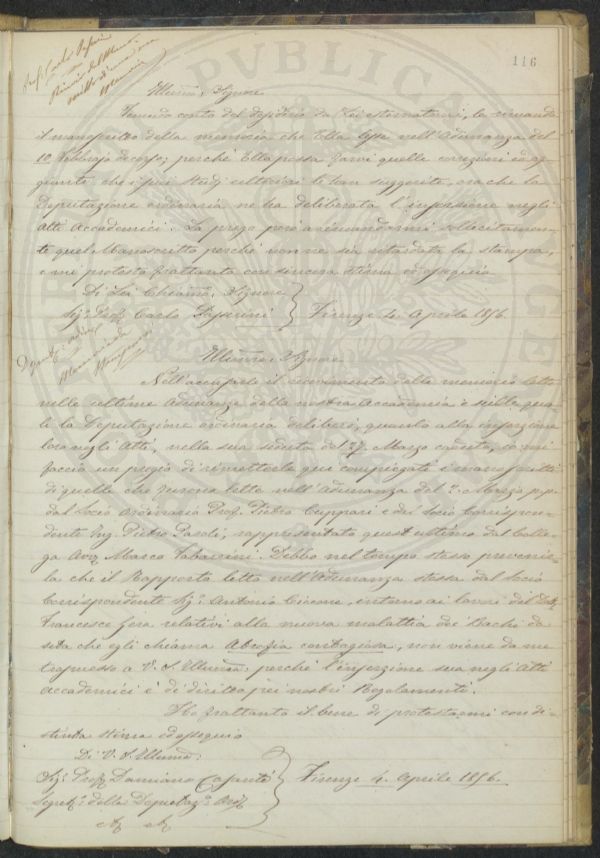 116
Prof. Carlo Passerini
Rinvio del Mano-
scritto d'una sua
Memoria
Illmo. Signore
Tenendo conto del desiderio da Lei esternatomi, le rimando
il manoscritto della memoria che Ella lesse nell'Adunanza del
10 Febbrajo decorso; perchè Ella possa farvi quelle correzioni ed ag-
giunte che i suoi studj ulteriori le han suggerite, ora che la
Deputazione ordinaria ne ha deliberata l'inserzione negli
Atti Accademici. La prego però a rimandarmi sollecitamen-
te quel Manoscritto perchè non ne sia ritardata la stampa,
e mi protesto frattanto con sincera stima ed ossequio
Di Lei Chiarmo. Signore
Sig. Prof. Carlo Passerini } Firenze 4. Aprile 1856.
Memorie da
stamparsi
Illmo. Signore
Nell'accusarle il ricevimento delle memorie lette
nelle ultime Adunanze della nostra Accademia e sulle qua-
li la Deputazione ordinaria deliberò, quanto alla inserzione
loro negli Atti, nella sua seduta del 27. Marzo caduto, io mi
faccio un pregio di rimetterle qui compiegati i manoscritti
di quelle che furono lette nell'Adunanza del 2. Marzo p.p.
dal Socio Ordinario Prof. Pietro Cuppari e dal Socio Corrispon-
dente Ing. Pietro Pasoli, rappresentato quest'ultimo dal Colle-
ga Avv. Marco Tabarrini. Debbo nel tempo stesso prevenir-
la che il Rapporto letto nell'Adunanza stessa dal Socio
Corrispondente Sig. Antonio Ciccone, intorno ai lavori del Dott.
Francesco Gera relativi alla nuova malattia dei Bachi da
seta che egli chiama Atrofia contagiosa, non viene da me
trasmesso a V. S. Illma. perchè l'inserzione sua negli Atti
Accademici è di diritto pei nostri Regolamenti.
Ho frattanto il bene di protestarmi con di-
stinta stima ed ossequio
Di V. S. Illma.
Sig. Prof. Damiano Caputi } Firenze 4. Aprile 1856.
Segret. della Deputaz. Ord.